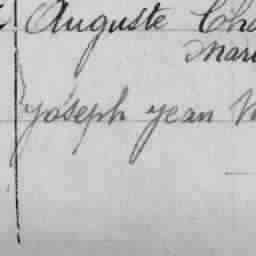 Auguste Cha
Mari
Joseph Jean